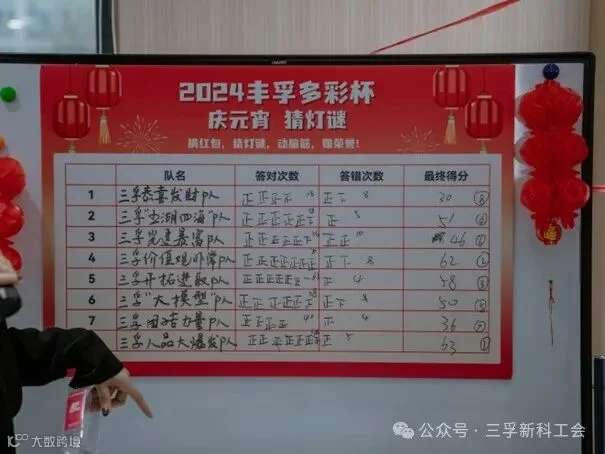 2024丰孚多彩杯
庆元宵 猜灯谜
摘红包，猜灯谜，动脑筋，赚荣誉！
队名 答对次数 答错次数 最终得分
1 三孚恭喜发财队 正正正 18 正 8 30 ⑧
2 三孚"五湖四海"队 正正正正正 正 8 51 ④
3 三孚光速暴富队 正正正正正 正正 10 46 ⑥
4 三孚价值观非常队 正正正正正正 正 8 62 ②
5 三孚开拓进取队 正正正正正 正 4 58 ③
6 三孚"大模型"队 正正正正正 正 8 50 ⑤
7 三孚团结力量队 正正正正 正 4 36 ⑦
8 三孚人品大爆发队 正正正正正正 正 5 63 ①
公众号·三孚新科工会
大数跨境